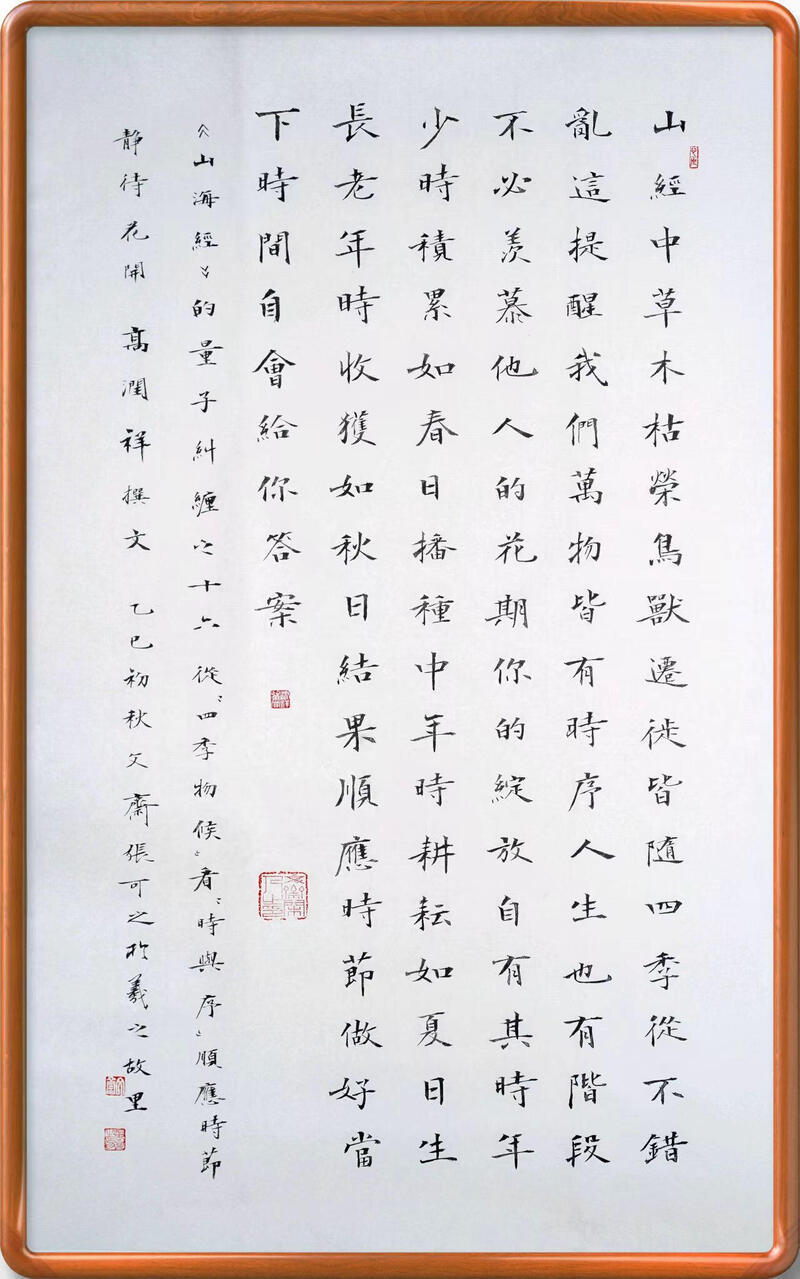 山經中草木枯榮鳥獸遷徙皆隨四季從不錯
亂這提醒我們萬物皆有時序人生也有階段
不必羨慕他人的花期你的綻放自有其時年
少時積累如春日播種中年時耕耘如夏日生
長老年時收穫如秋日結果順應時節做好當
下時間自會給你答案
《山海經》的量子糾纏之十六 從“四季物候”看“時與序”順應時節
靜待花開 高潤祥撰文 乙巳初秋文齋張可之於羲之故里